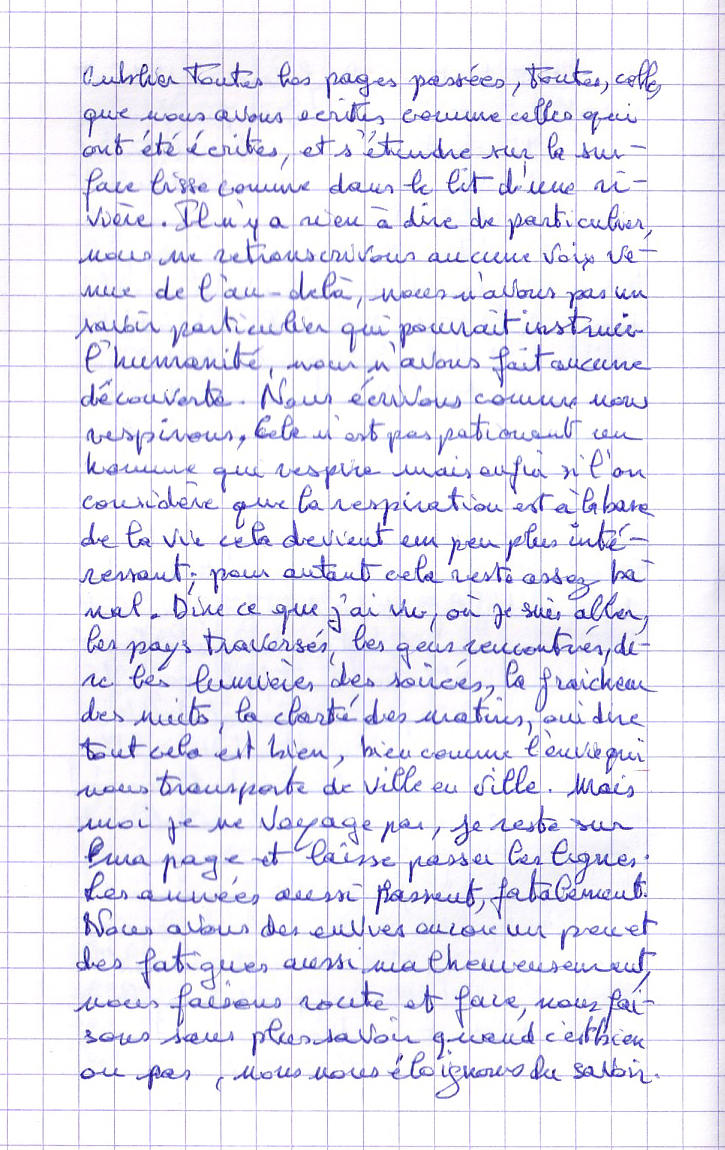 oublier toutes les pages passées, toutes, celles
que nous avons écrites comme celles qui
ont été écrites, et s'étendre sur la sur-
face lisse comme dans le lit d'une ri-
vière. Il n'y a rien à dire de particulier,
nous ne retranscrivons aucune voix ve-
nue de l'au-delà, nous n'avons pas un
savoir particulier qui pourrait instruire
l'humanité, nous n'avons fait aucune
découverte. Nous écrivons comme nous
respirons, cela n'est pas passionnant un
homme qui respire mais enfin si l'on
considère que la respiration est à la base
de la vie cela devient un peu plus inté-
ressant; pour autant cela reste assez ba-
nal. Dire ce que j'ai vu, où je suis aller,
les pays traversés, les gens rencontrés, di-
re les lumières des soirées, la fraicheur
des nuits, la clarté des matins, oui dire
tout cela est bien, bien comme l'envie qui
nous transporte de ville en ville. Mais
moi je ne voyage pas, je reste sur
ma page et laisse passer les lignes.
Les années aussi passent, fatalement.
Nous avons des envies encore un peu et
des fatigues aussi malheureusement,
nous faisons route et face, nous fai-
sons sans plus savoir quand c'est bien
ou pas, nous nous éloignons du savoir.